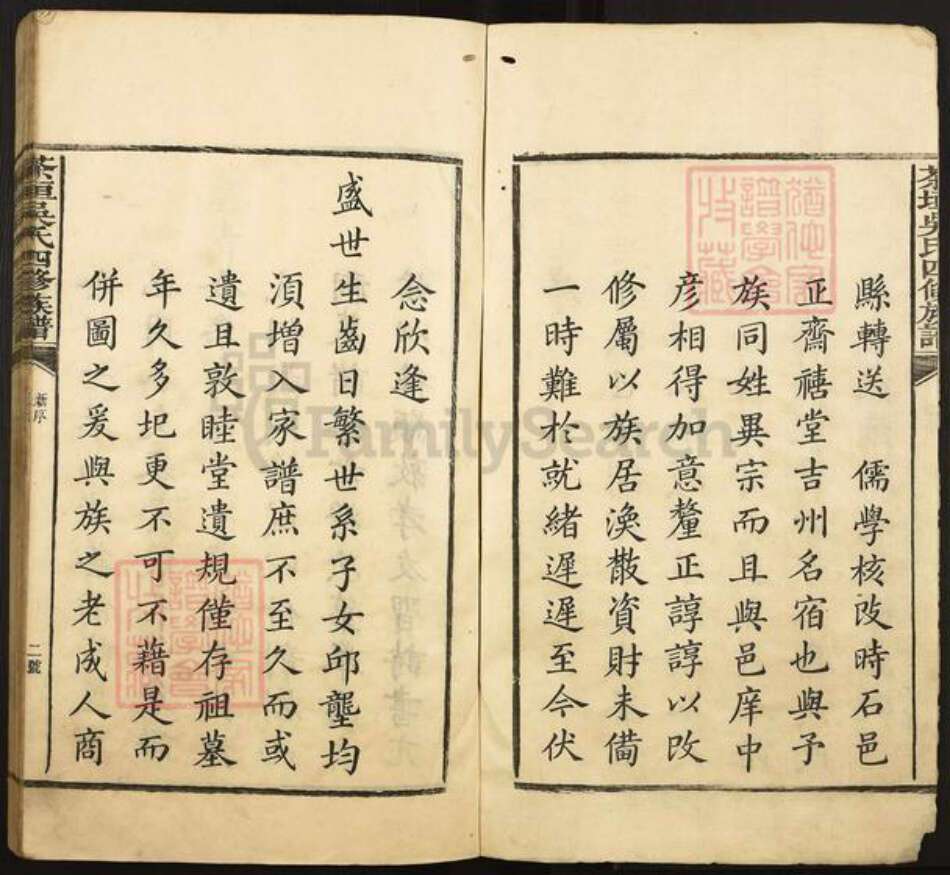 茶垣吳氏四修族譜
縣轉送　儒學核改時石邑
正齋禧堂吉州名宿也與予
族同姓異宗而且與邑庠中
彦相得加意釐正諄諄以改
修屬以族居渙散資財未備
一時難於就緒遲遲至今伏
念欣逢
盛世生齒日繁世系子女邱壟均
湏增入家譜庶不至久而或
遺且敦睦堂遺規僅存祖墓
年久多圯更不可不藉是而
併圖之爰與族之老成人商
茶垣吳氏四修族譜
新序
二號
猶他家
譜學會
收藏
猶他家
譜學會
收藏
FamilySearch